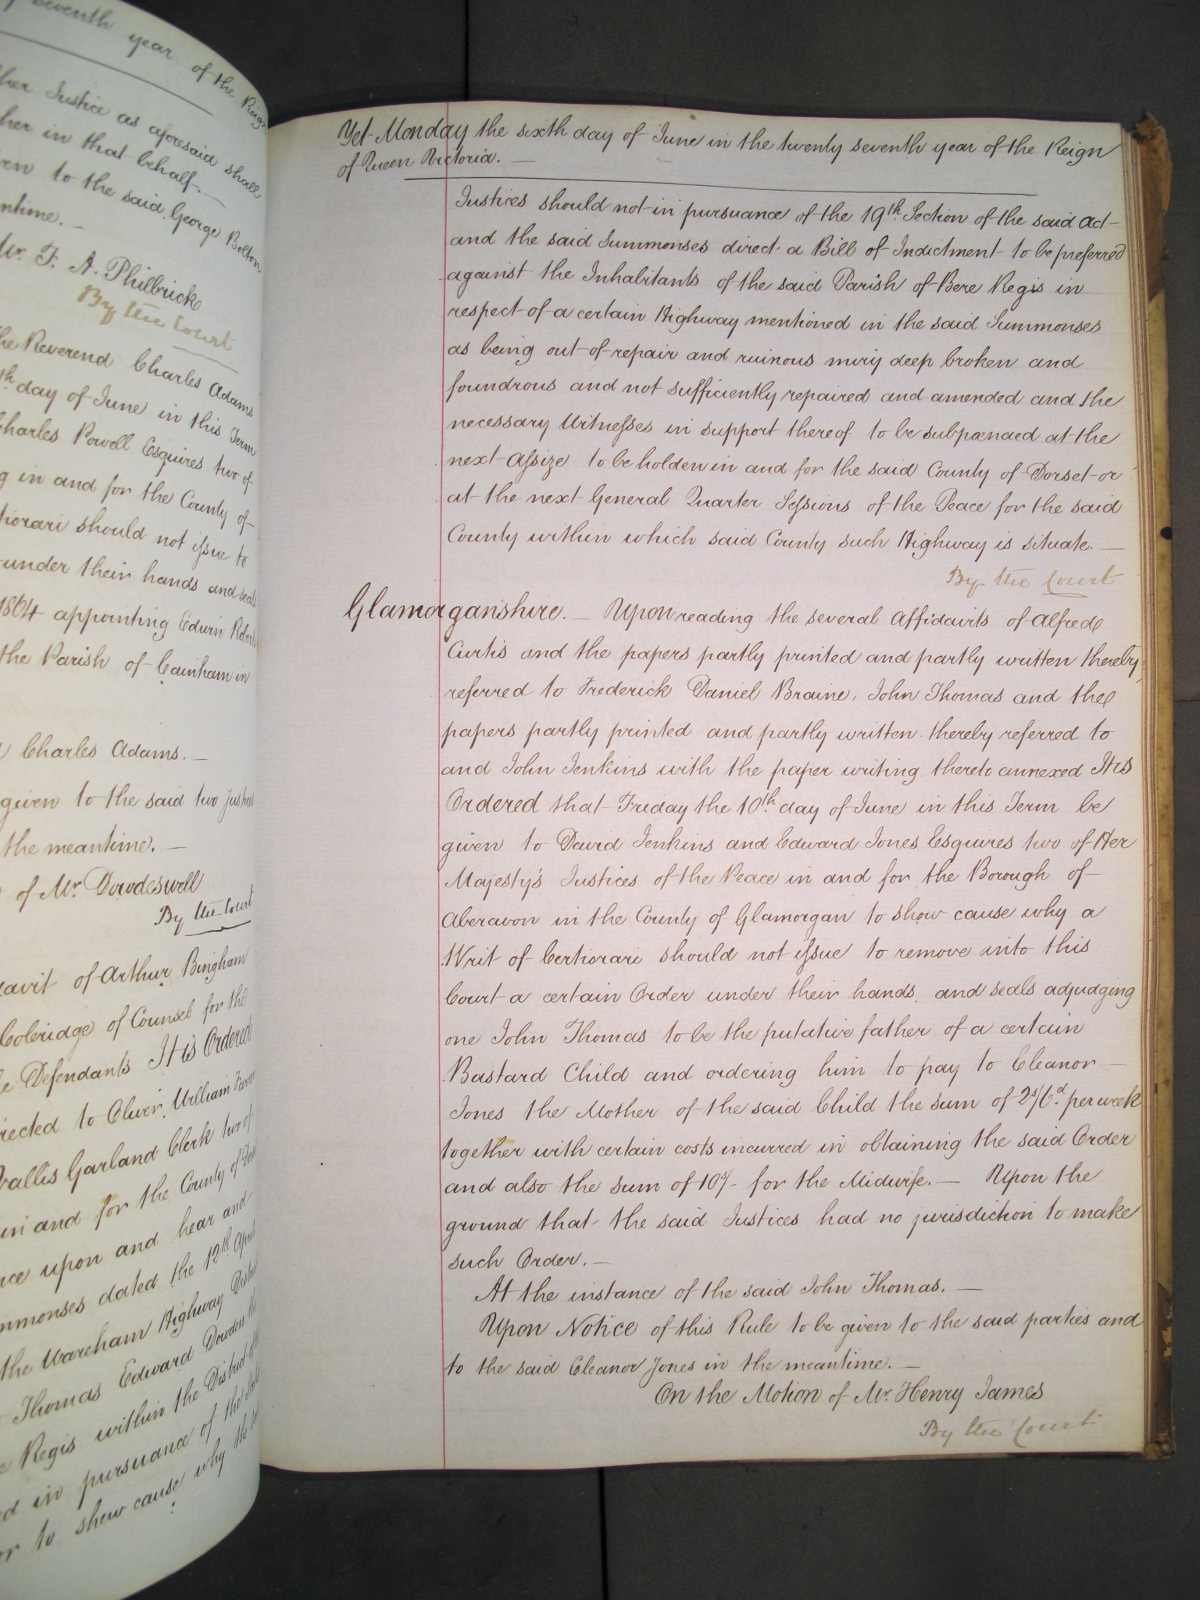 seventh year of the Reign
Justice as aforesaid shall
her in that behalf. —
to the said George Bolton
meantime. —
Mr. F. A. Philbrick
By the Court
the Reverend Charles Adams
day of June in this Term
Charles Powell Esquires two of
in and for the County of
should not issue to
under their hands and seals
1864 appointing Edwin
the Parish of Cainham in
Charles Adams. —
given to the said two Justices
the meantime. —
of Mr. Dowdeswell
By the Court
of Arthur Bingham
Coleridge of Counsel for the
Defendants It is Ordered
to Oliver William
Garland Clerk two of
in and for the County of
upon and hear and
dated the 12th April
the Wareham Highway
Thomas Edward Dowden
Regis within the District of
in pursuance of the
to shew cause why the
Yet Monday the sixth day of June in the twenty seventh year of the Reign
of Queen Victoria. —
Justices should not in pursuance of the 19th Section of the said Act
and the said Summonses direct a Bill of Indictment to be preferred
against the Inhabitants of the said Parish of Bere Regis in
respect of a certain Highway mentioned in the said Summonses
as being out of repair and ruinous miry deep broken and
foundrous and not sufficiently repaired and amended and the
necessary Witnesses in support thereof to be subpœnaed at the
next Assize to be holden in and for the said County of Dorset or
at the next General Quarter Sessions of the Peace for the said
County within which said County such Highway is situate. —
By the Court
Glamorganshire. — Upon reading the several Affidavits of Alfred
Curtis and the papers partly printed and partly written thereby
referred to Frederick Daniel Braine, John Thomas and the
papers partly printed and partly written thereby referred to
and John Jenkins with the paper writing thereto annexed It is
Ordered that Friday the 10th day of June in this Term be
given to David Jenkins and Edward Jones Esquires two of Her
Majesty's Justices of the Peace in and for the Borough of
Aberavon in the County of Glamorgan to show cause why a
Writ of Certiorari should not issue to remove into this
Court a certain Order under their hands and seals adjudging
one John Thomas to be the putative father of a certain
Bastard Child and ordering him to pay to Eleanor —
Jones the Mother of the said Child the sum of 2s/6d per week
together with certain costs incurred in obtaining the said Order
and also the sum of 10s/- for the Midwife. — Upon the
ground that the said Justices had no jurisdiction to make
such Order. —
At the instance of the said John Thomas. —
Upon Notice of this Rule to be given to the said parties and
to the said Eleanor Jones in the meantime. —
On the Motion of Mr. Henry James
By the Court